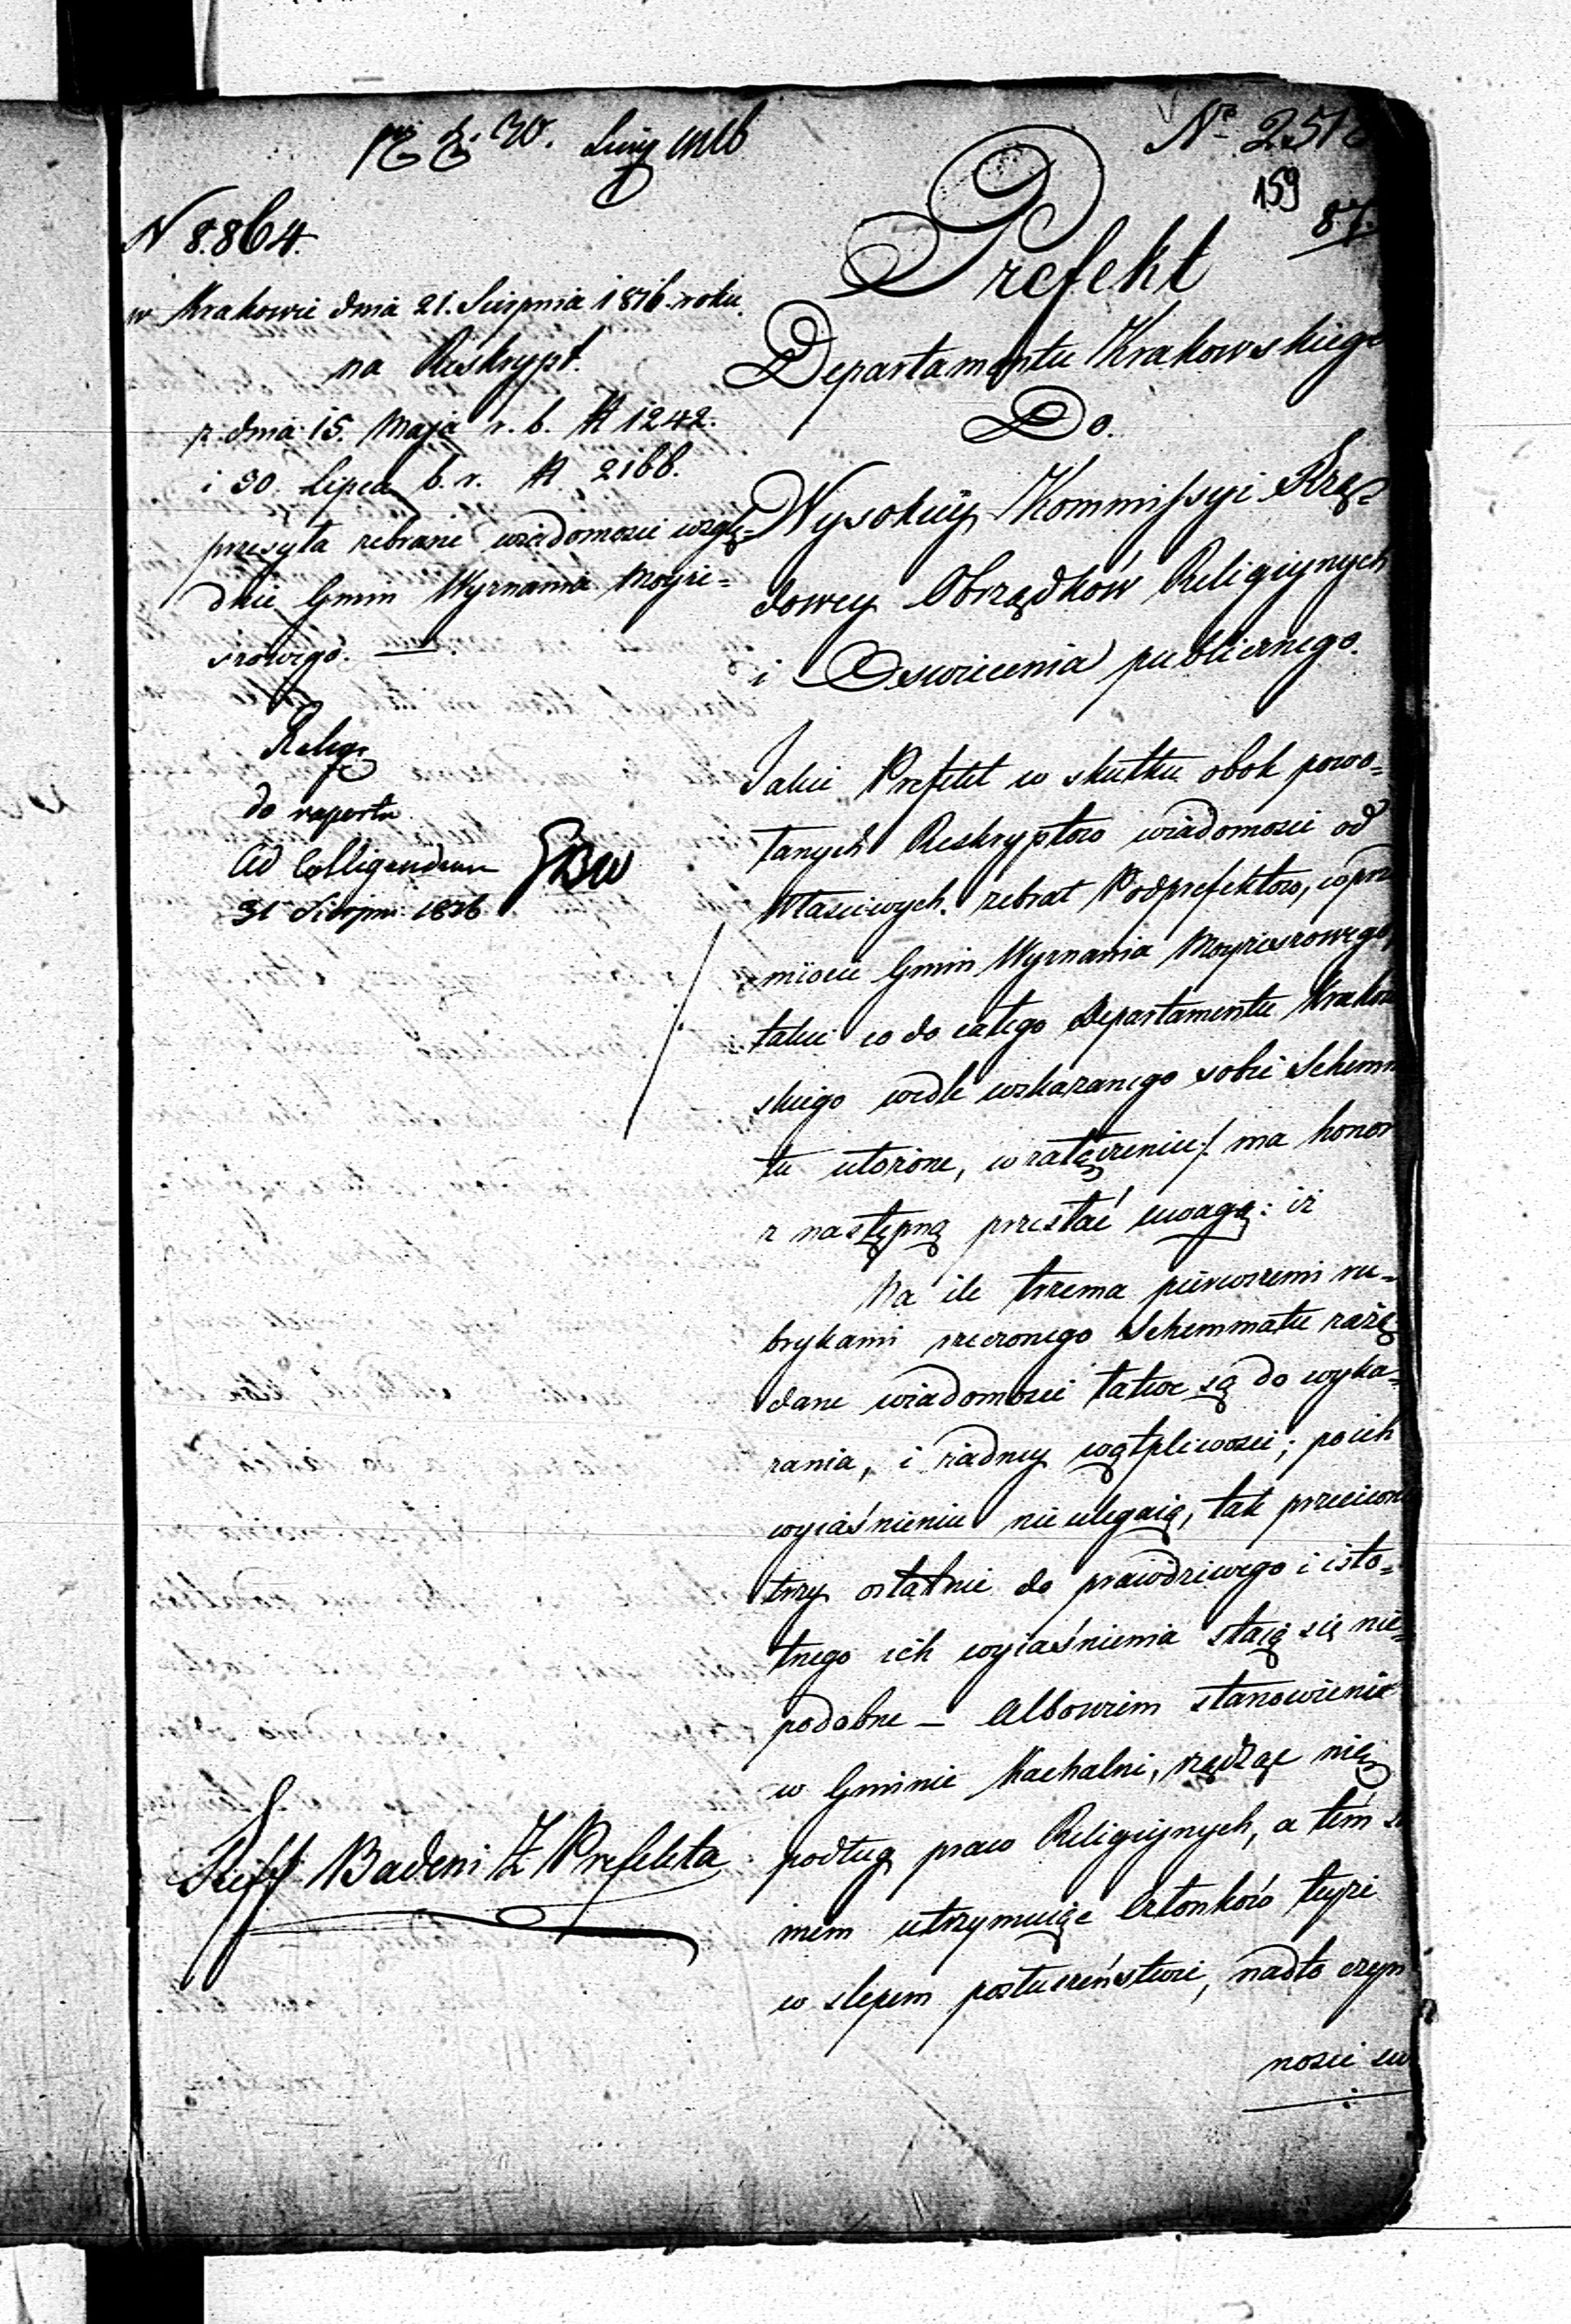 30. Sierp 1816
Nº 251
159
87.
N 8.864.
w Krakowie dnia 21. Sierpnia 1816. roku.
na Reskrypt.
z dnia 15. Maja r. b. N 1242.
i 30. Lipca b. r. N. 2166.
przesyła zebrane wiadomosci wzglę=
dnie Gmin Wyznania Moyże=
szowego. —
Relig
do raportu
Ad Colligendum
31 Sierpn: 1816
Badeni Z Prefekta
Prefekt
Departamentu Krakowskiego
Do.
Wysokiey Kommissyi Rzą=
dowey Obrządków Religiynych
i Oswiecenia publicznego.
Jakie Prefekt w skutku obok powo=
łanych Reskryptow wiadomosci od
Własciwych zebrał Podprefektow, w prze
miocie Gmin Wyznania Moyżeszowego,
takie co do całego Departamentu Krakow
skiego wedle wskazanego sobie Schemma
tu ułożone, w załączeniu /. ma honor
z następną przesłać uwagą: iż
Na ile trzema pierwszemi ru=
brykami rzeczonego Schemmatu zażą
dane wiadomosci łatwe są do wyka=
zania, i żadney wątpliwosci; po ich
wyiaśnieniu nie ulegaią, tak przeciwnie
trzy ostatnie do prawdziwego i isto=
tnego ich wyiaśnienia staią się nie=
podobne — Albowiem stanowienie
w Gminie Kachalni, rządząc nią
podług praw Religiynych, a tém sa
mém utrzymuiąc Członków teyże
w slepem posłuszeństwie, nadto czyn
nosci sw